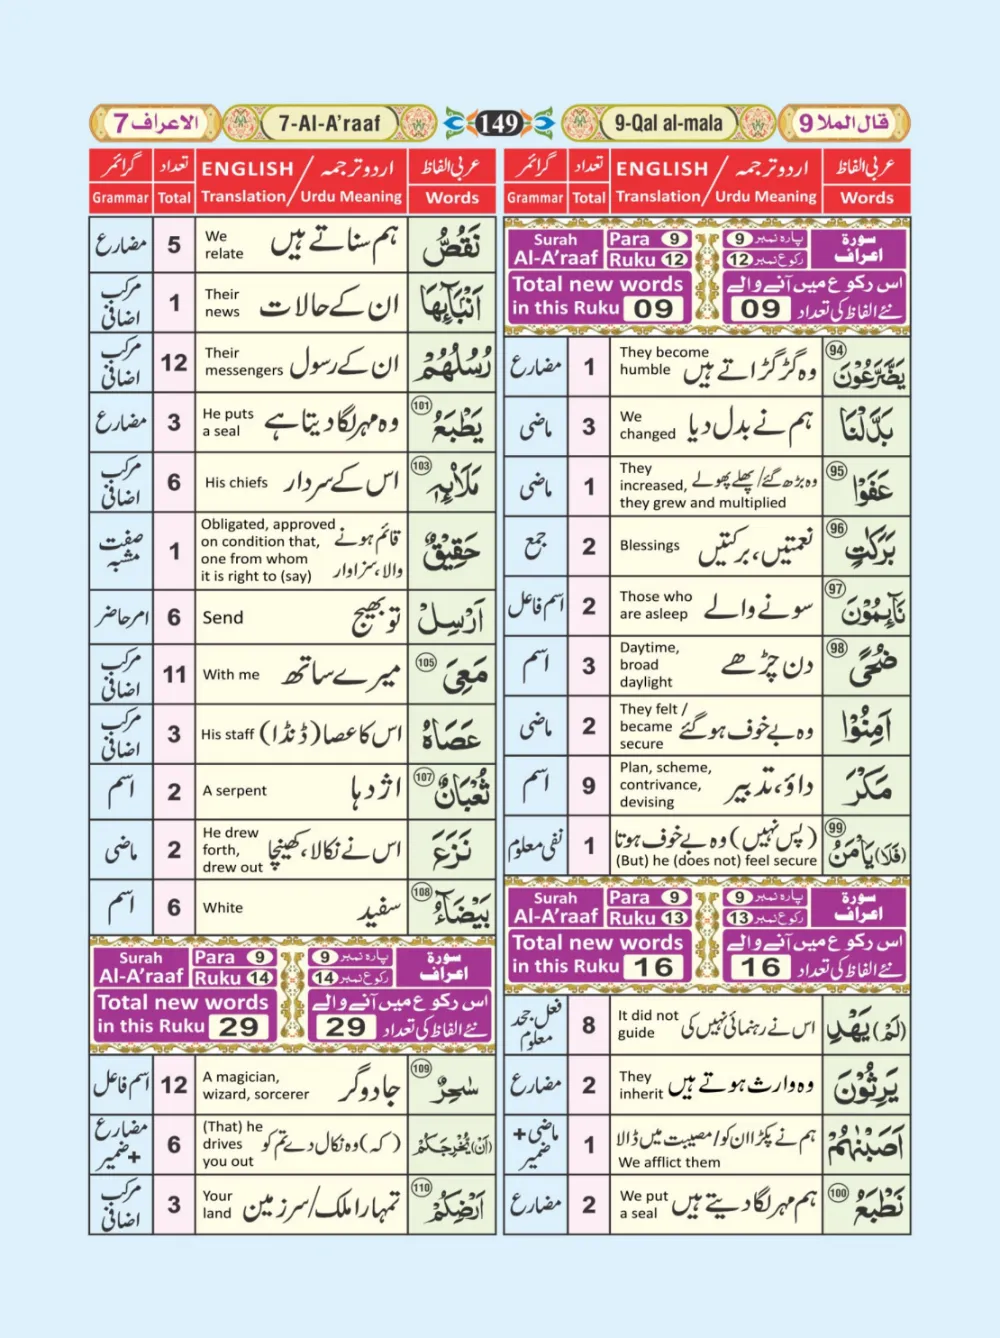 الاعراف 7
7-Al-A'raaf
149
9-Qal al-mala
قال الملا 9
عربی الفاظ
اردو ترجمہ / ENGLISH
تعداد
گرائمر
Words
Translation / Urdu Meaning
Total
Grammar
سورة اعراف
پارہ نمبر 9
رکوع نمبر 12
Surah Al-A'raaf
Para 9
Ruku 12
اس رکوع میں آنے والے
نئے الفاظ کی تعداد 09
Total new words
in this Ruku 09
94 يَضَّرَّعُوْنَ
وہ گڑگڑاتے ہیں
They become
humble
1
مضارع
بَدَّلْنَا
ہم نے بدل دیا
We
changed
3
ماضی
95 عَفَوْا
وہ بڑھ گئے/پھلے پھولے
They
increased,
they grew and multiplied
1
ماضی
96 بَرَكٰتٍ
نعمتیں، برکتیں
Blessings
2
جمع
97 نَآئِمُوْنَ
سونے والے
Those who
are asleep
2
اسم فاعل
98 ضُحًى
دن چڑھے
Daytime,
broad
daylight
3
اسم
اَمِنُوْا
وہ بے خوف ہو گئے
They felt /
became
secure
2
ماضی
مَكْرَ
داؤ، تدبیر
Plan, scheme,
contrivance,
devising
9
اسم
99 (فَلَا) يَاْمَنُ
(پس نہیں) وہ بے خوف ہوتا
(But) he (does not) feel secure
1
نفی معلوم
سورة اعراف
پارہ نمبر 9
رکوع نمبر 13
Surah Al-A'raaf
Para 9
Ruku 13
اس رکوع میں آنے والے
نئے الفاظ کی تعداد 16
Total new words
in this Ruku 16
(لَمْ) يَهْدِ
اس نے رہنمائی نہیں کی
It did not
guide
8
فعل جحد
معلوم
يَرِثُوْنَ
وہ وارث ہوتے ہیں
They
inherit
2
مضارع
اَصَبْنٰهُمْ
ہم نے پکڑا ان کو/مصیبت میں ڈالا
We afflict them
1
ماضی +
ضمیر
100 نَطْبَعُ
ہم مہر لگا دیتے ہیں
We put
a seal
2
مضارع
عربی الفاظ
اردو ترجمہ / ENGLISH
تعداد
گرائمر
Words
Translation / Urdu Meaning
Total
Grammar
نَقُصُّ
ہم سناتے ہیں
We
relate
5
مضارع
اَنْۢبَآئِهَا
ان کے حالات
Their
news
1
مرکب
اضافی
رُسُلُهُمْ
ان کے رسول
Their
messengers
12
مرکب
اضافی
101 يَطْبَعُ
وہ مہر لگا دیتا ہے
He puts
a seal
3
مضارع
103 مَلَا۟ئِهٖ
اس کے سردار
His chiefs
6
مرکب
اضافی
حَقِيْقٌ
قائم ہونے
والا، سزاوار
Obligated, approved
on condition that,
one from whom
it is right to (say)
1
صفت
مشبہ
اَرْسِلْ
تو بھیج
Send
6
امر حاضر
105 مَعِىَ
میرے ساتھ
With me
11
مرکب
اضافی
عَصَاهُ
اس کا عصا (ڈنڈا)
His staff
3
مرکب
اضافی
107 ثُعْبَانٌ
اژدہا
A serpent
2
اسم
نَزَعَ
اس نے نکالا، کھینچا
He drew
forth,
drew out
2
ماضی
108 بَيْضَآءُ
سفید
White
6
اسم
سورة اعراف
پارہ نمبر 9
رکوع نمبر 14
Surah Al-A'raaf
Para 9
Ruku 14
اس رکوع میں آنے والے
نئے الفاظ کی تعداد 29
Total new words
in this Ruku 29
109 سٰحِرٌ
جادوگر
A magician,
wizard, sorcerer
12
اسم فاعل
(اَنْ) يُّخْرِجَكُمْ
(کہ) وہ نکال دے تم کو
(That) he
drives
you out
6
مضارع
+ ضمیر
110 اَرْضِكُمْ
تمہارا ملک/سرزمین
Your
land
3
مرکب
اضافی